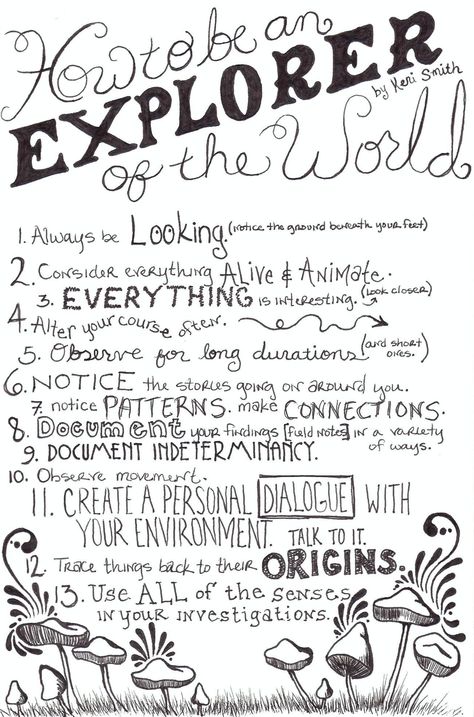 How to be an
EXPLORER
by Keri Smith
of the World
1. Always be Looking. (notice the ground beneath your feet)
2. Consider everything ALIVE & ANIMATE.
3. EVERYTHING is interesting. (look closer)
4. Alter your course often.
5. Observe for long durations (and short ones.)
6. NOTICE the stories going on around you.
7. notice PATTERNS. make CONNECTIONS.
8. Document your findings [field notes] in a variety of ways.
9. DOCUMENT INDETERMINANCY.
10. Observe movement.
11. CREATE A PERSONAL DIALOGUE WITH
YOUR ENVIRONMENT. TALK TO IT.
12. Trace things back to their ORIGINS.
13. Use ALL of the senses
in your investigations.